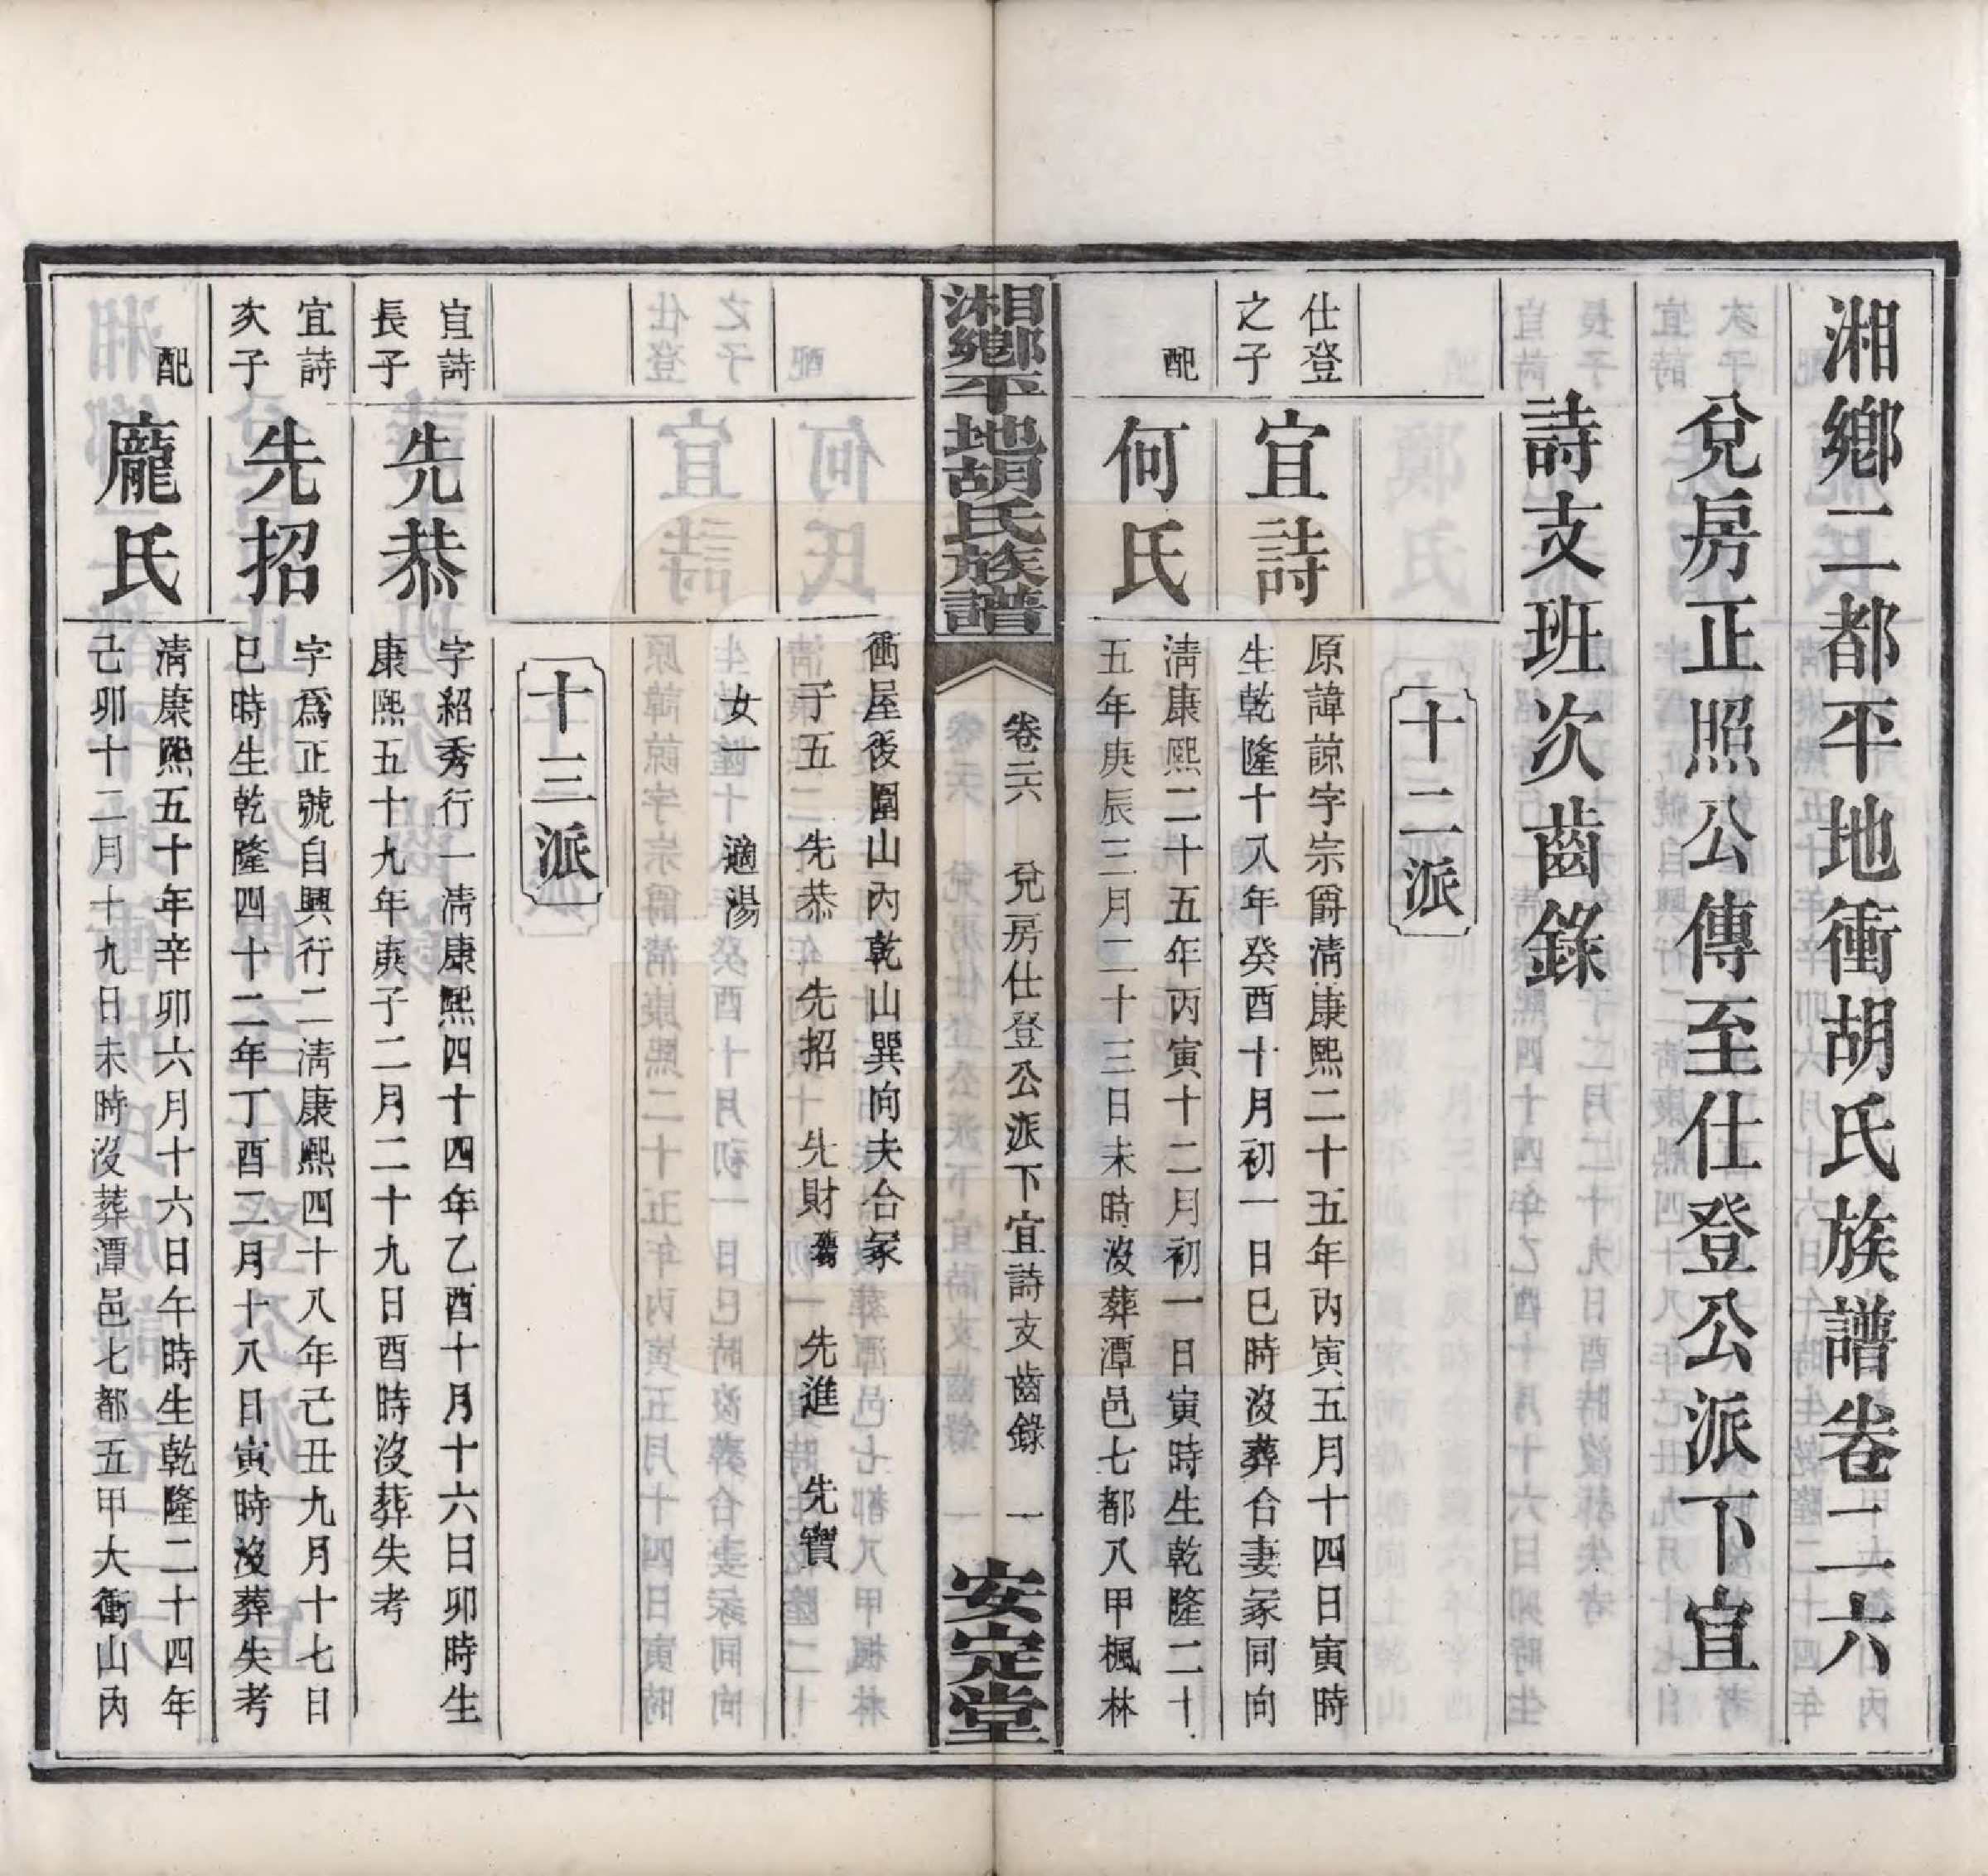 湘鄉二都平地衝胡氏族譜卷二六
兌房正照公傳至仕登公派下宜
詩支班次齒錄
十二派
仕登
之子
宜詩
原諱諒字宗爵清康熙二十五年丙寅五月十四日寅時
生乾隆十八年癸酉十月初一日巳時沒葬合妻冢同向
配
何氏
清康熙二十五年丙寅十二月初一日寅時生乾隆二十
五年庚辰三月二十三日未時沒葬潭邑七都八甲楓林
湘鄉平地胡氏族譜
卷二六 兌房仕登公派下宜詩支齒錄 一
安定堂
衝屋後圍山內乾山巽向夫合冢
子五 先恭 先招 先財 先進 先寶
女一 適湯
十三派
宜詩
長子
先恭
字紹秀行一清康熙四十四年乙酉十月十六日卯時生
康熙五十九年庚子二月二十九日酉時沒葬失考
宜詩
次子
先招
字為正號自興行二清康熙四十八年己丑九月十七日
巳時生乾隆四十二年丁酉二月十八日寅時沒葬失考
配
龐氏
清康熙五十年辛卯六月十六日午時生乾隆二十四年
己卯十二月十九日未時沒葬潭邑七都五甲大衝山內